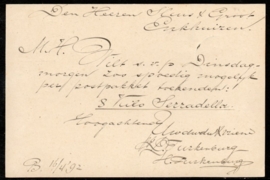 Den Heeren Sluis & Groot
Enkhuizen.
M.H. Wilt s.v.p. Dinsdag-
morgen zoo spoedig mogelijk
per postpakket toezenden
5 Kilo Serradella
Hoogachtend
Uwdw dienaar
Turkenburg
15/4/92